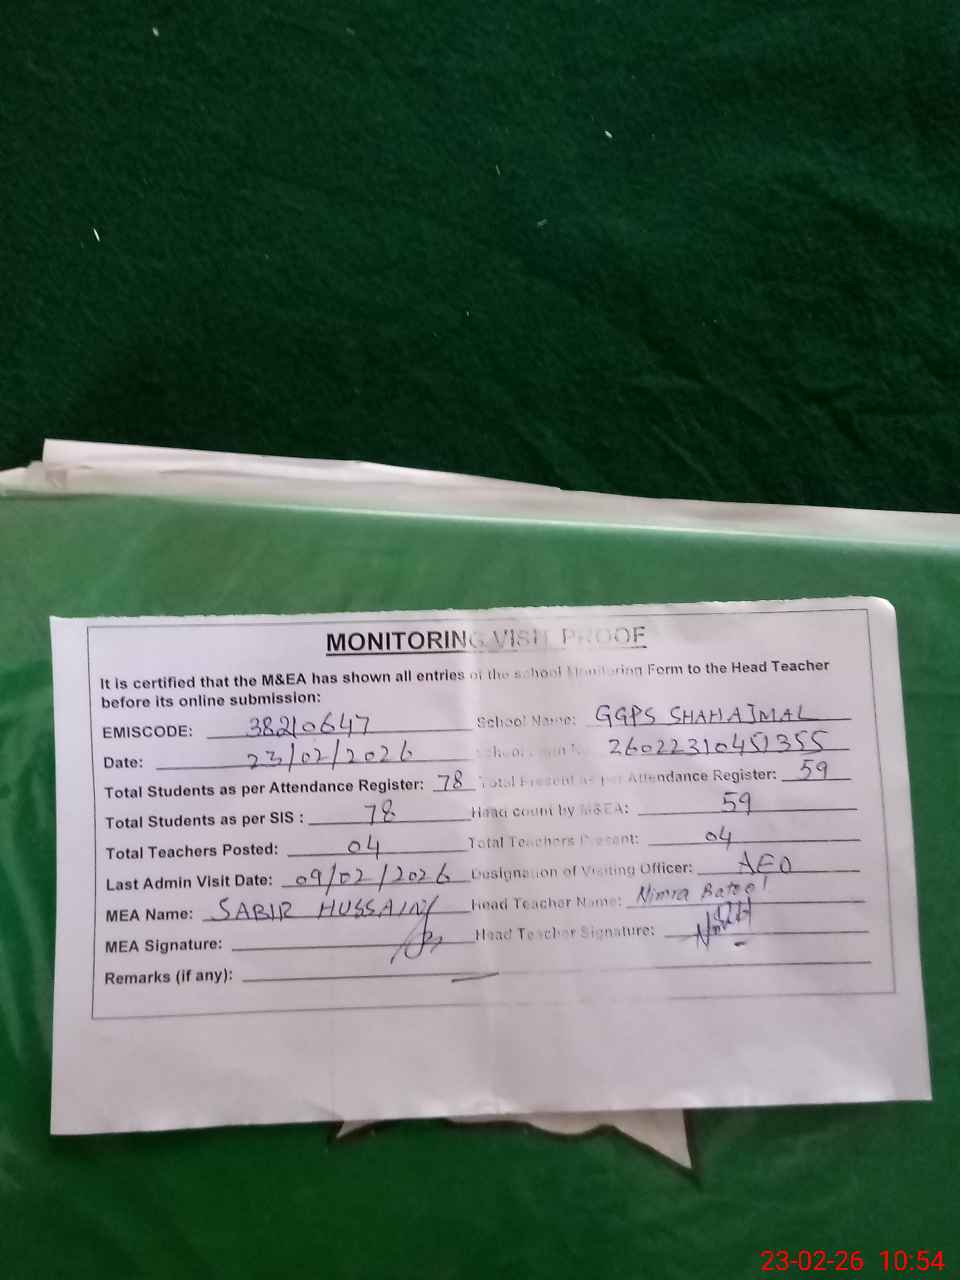 MONITORING VISIT PROOF
It is certified that the M&EA has shown all entries of the school Monitoring Form to the Head Teacher
before its online submission:
EMISCODE: 38210647 School Name: GGPS SHAHAJMAL
Date: 23/02/2026 School 26022310451355
Total Students as per Attendance Register: 78 Total Present as per Attendance Register: 59
Total Students as per SIS : 78 Head count by M&EA: 59
Total Teachers Posted: 04 Total Teachers Present: 04
Last Admin Visit Date: 09/02/2026 Designation of Visiting Officer: AEO
MEA Name: SABIR HUSSAIN Head Teacher Name: Nimra Batool
MEA Signature: Head Teacher Signature:
Remarks (if any):
23-02-26 10:54